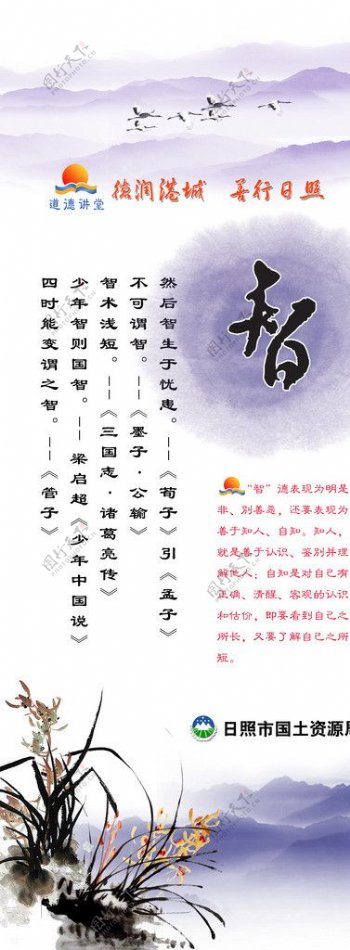 道德讲堂
德润港城 善行日照
智
然后智生于忧患。——《荀子》引《孟子》
不可谓智。——《墨子·公输》
智术浅短。——《三国志·诸葛亮传》
少年智则国智。——梁启超《少年中国说》
四时能变谓之智。——《管子》
“智”德表现为明是
非、别善恶，还要表现为
善于知人、自知。知人，
就是善于认识、鉴别并理
解他人；自知是对自己有
正确、清醒、客观的认识
和估价，即要看到自己之
所长，又要了解自己之所
短。
日照市国土资源局